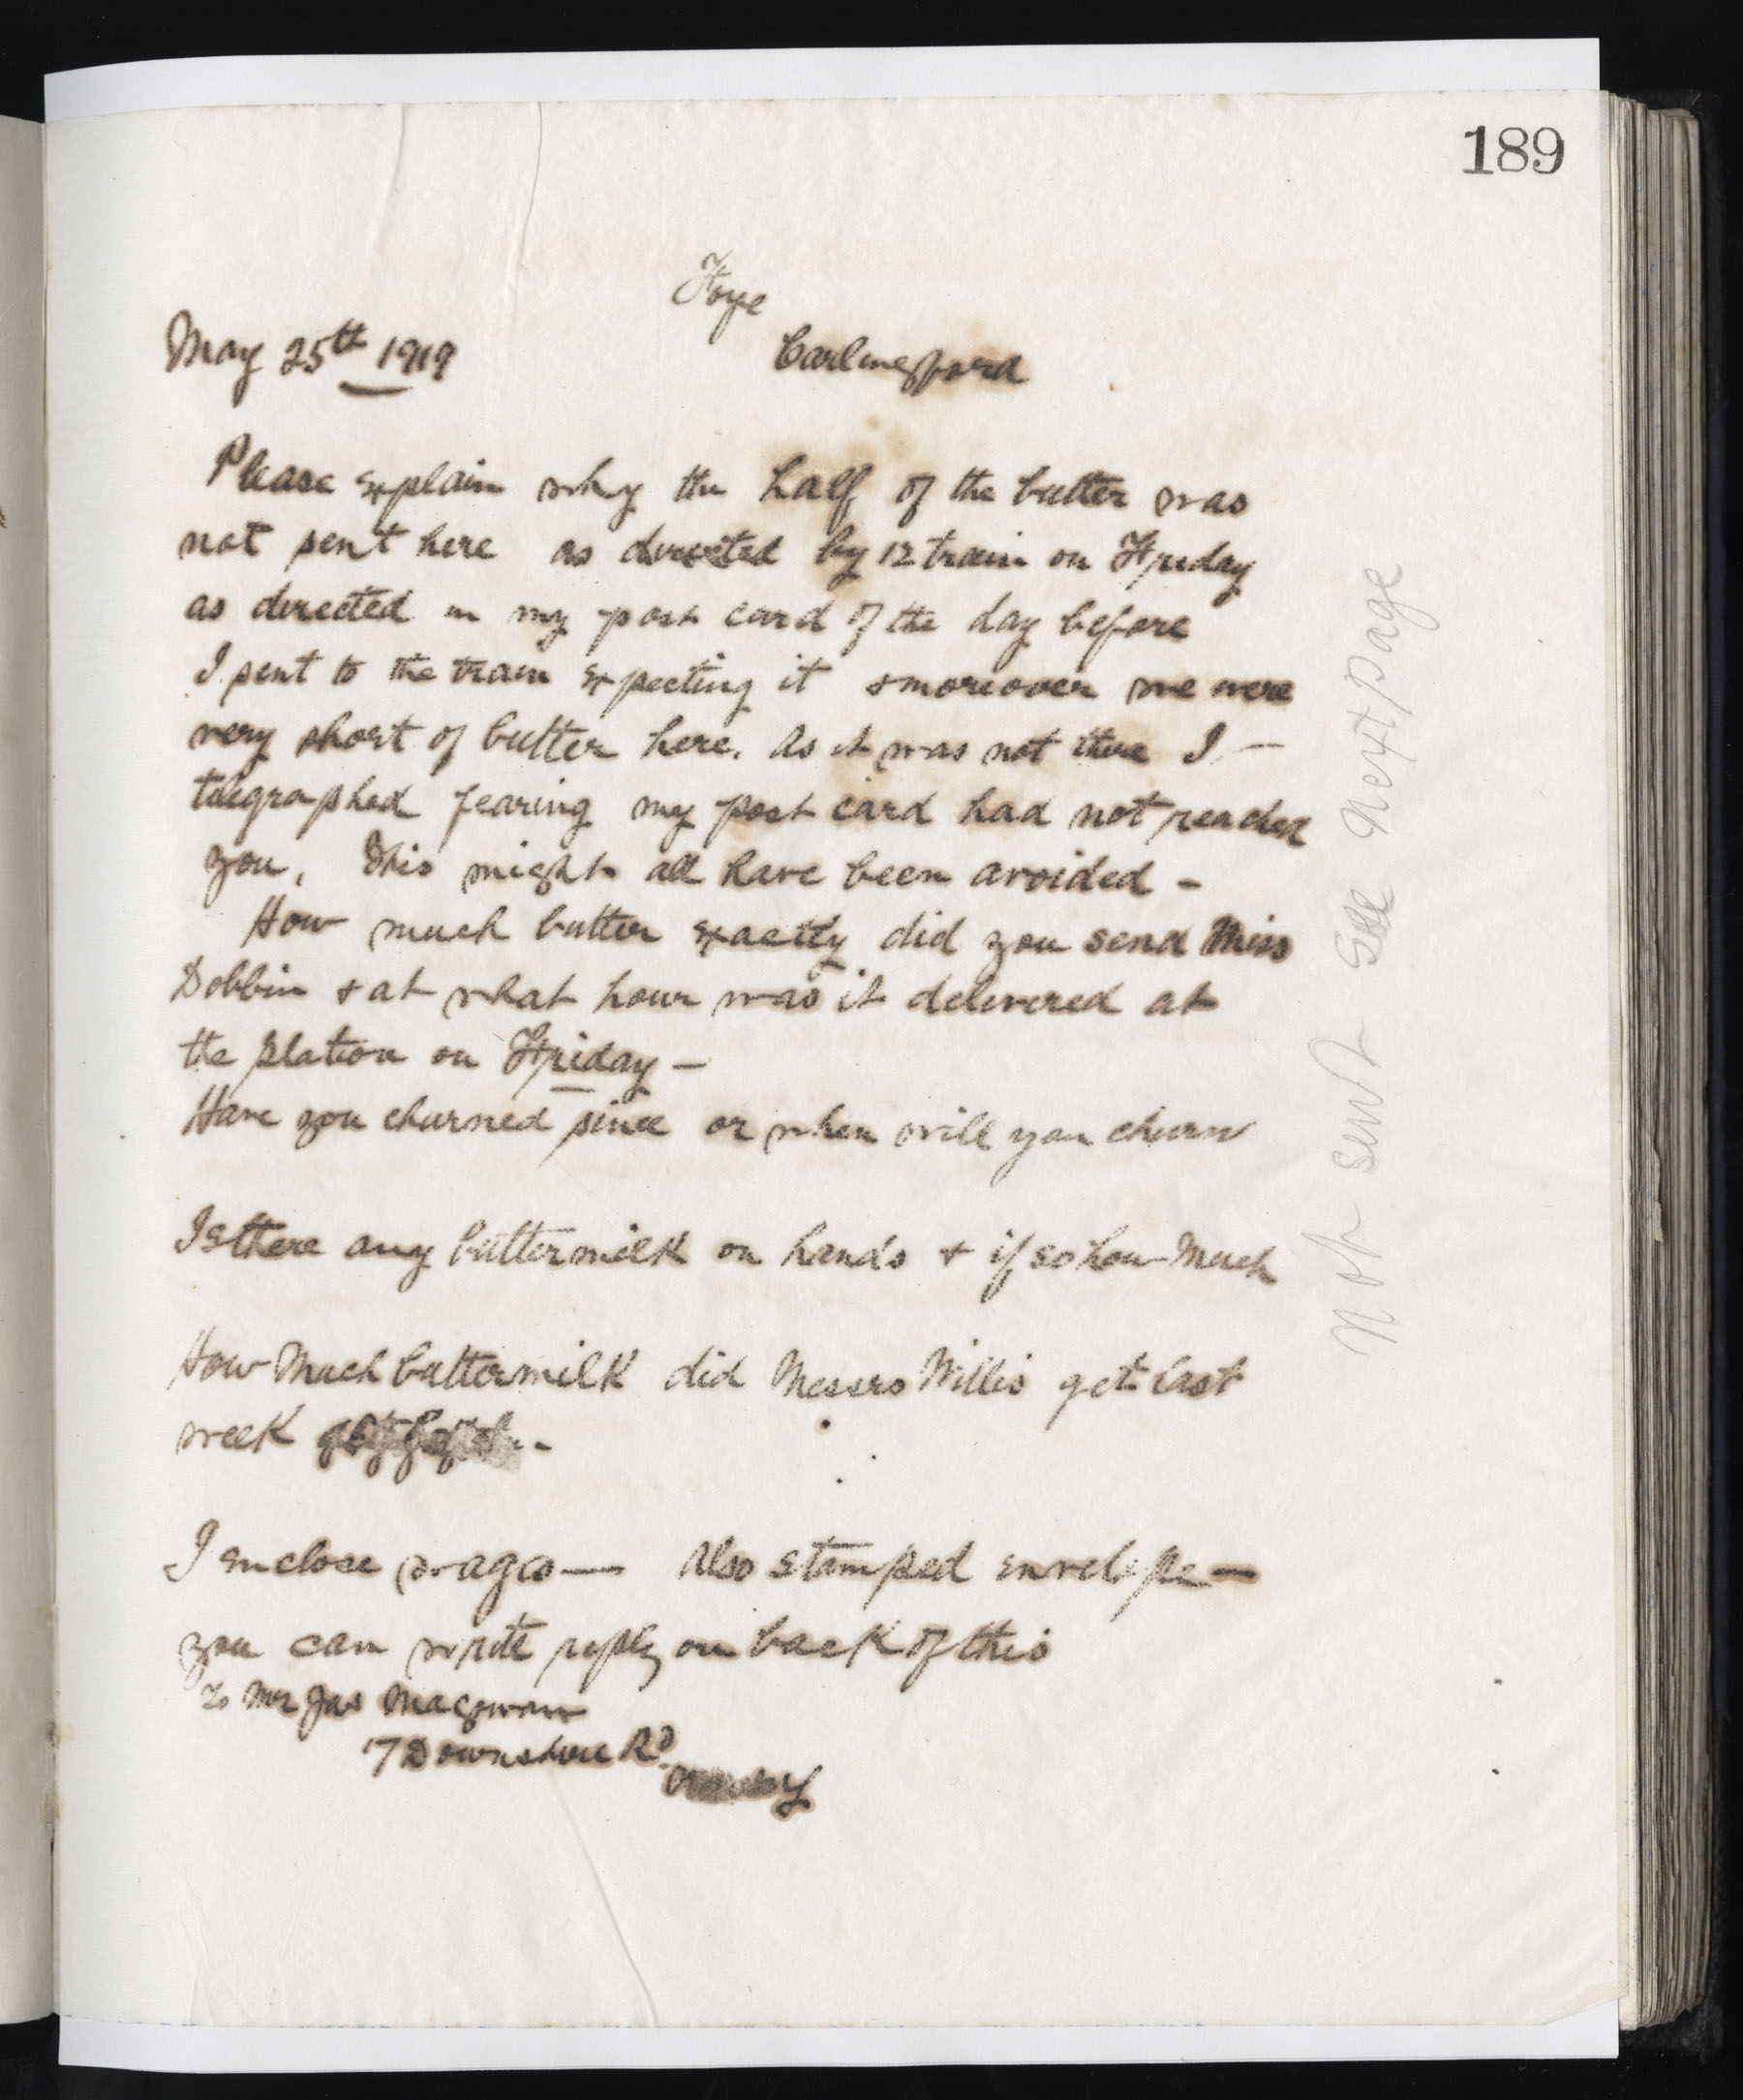 189
Foye
May 25th 1919 Carlingford
Please explain why the half of the butter was
not sent here as directed by 12 train on Friday
as directed in my post card of the day before
I sent to the train expecting it & moreover we were
very short of butter here. As it was not there I —
telegraphed fearing my post card had not reached
you, This might all have been avoided -
How much butter exactly did you send Miss
Dobbin & at what hour was it delivered at
the station on Friday —
Have you churned since or when will you churn
Is there any buttermilk on hands & if so how much
How much buttermilk did Messrs Willis get last
week -
I enclose wages — Also stamped envelope —
you can write reply on back of this
To Mr Jas Macgowan
17 Downshire Rd
Newry
Not sent See Next page